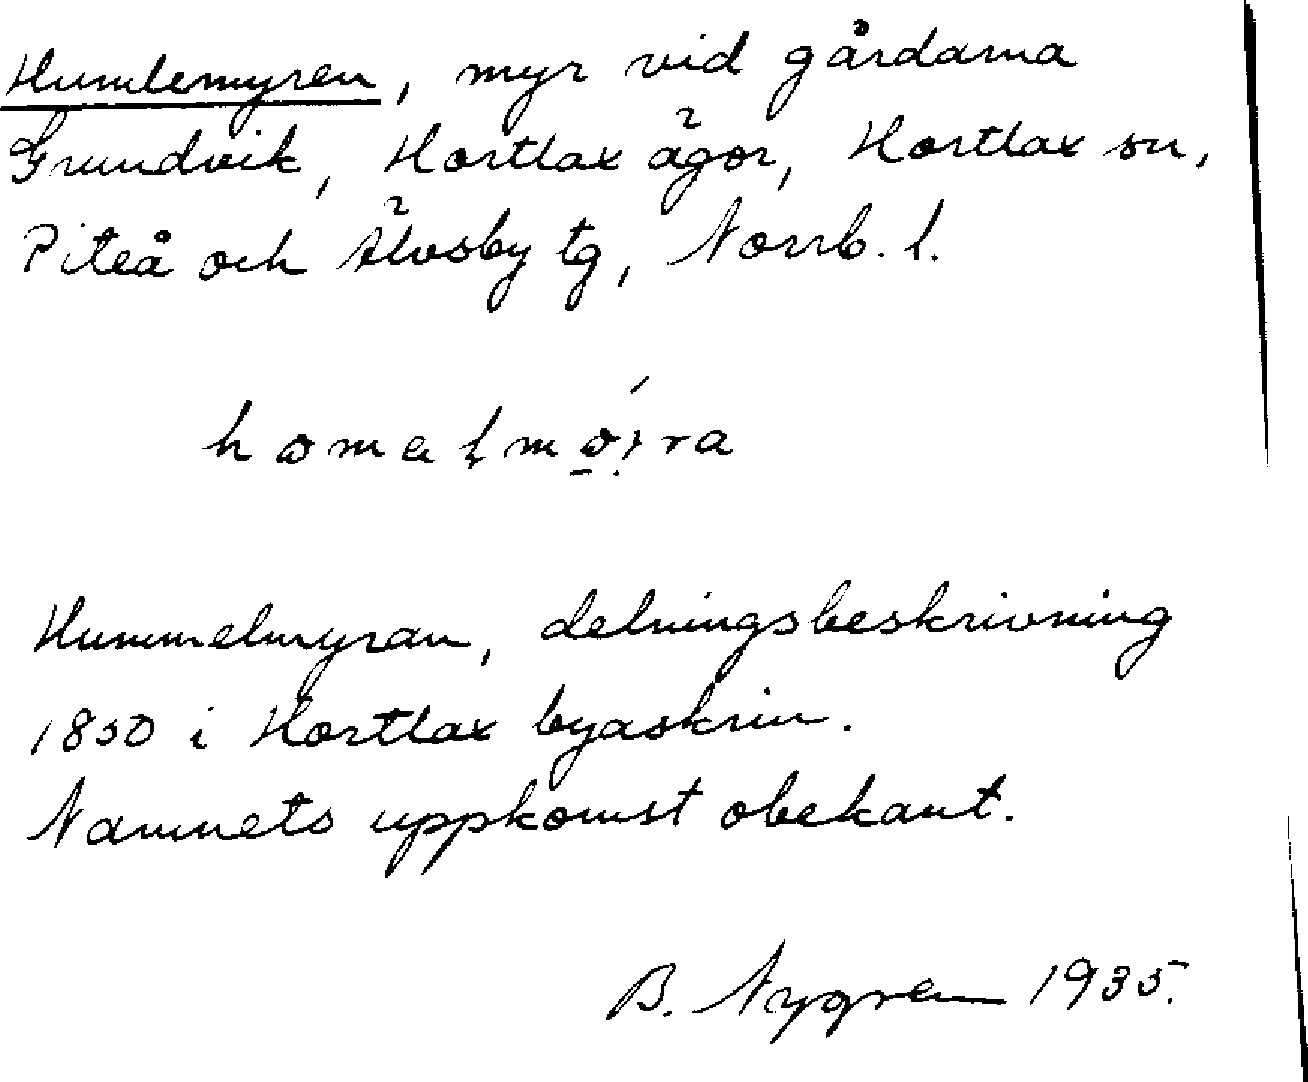 Humlemyren, myr vid gårdarna
Grundvik, Hortlax ägor, Hortlax sn,
Piteå och Älvsby tg, Norrb. l.
Hummelmyran, delningsbeskrivning
1850 i Hortlax byaskrin.
Namnets uppkomst obekant.
B. Nygren 1935.